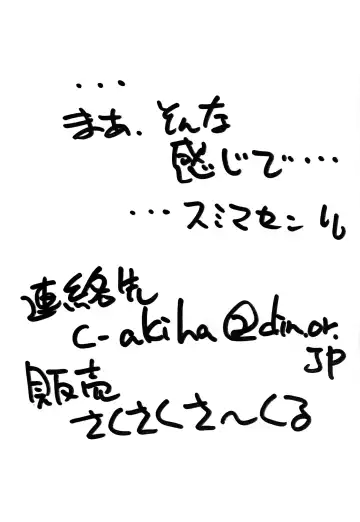 ・・・
まあ、そんな
感じで・・・
・・・スミマセン
連絡先
c-akiha@din.or.
JP
販売
さくさくさ〜くる